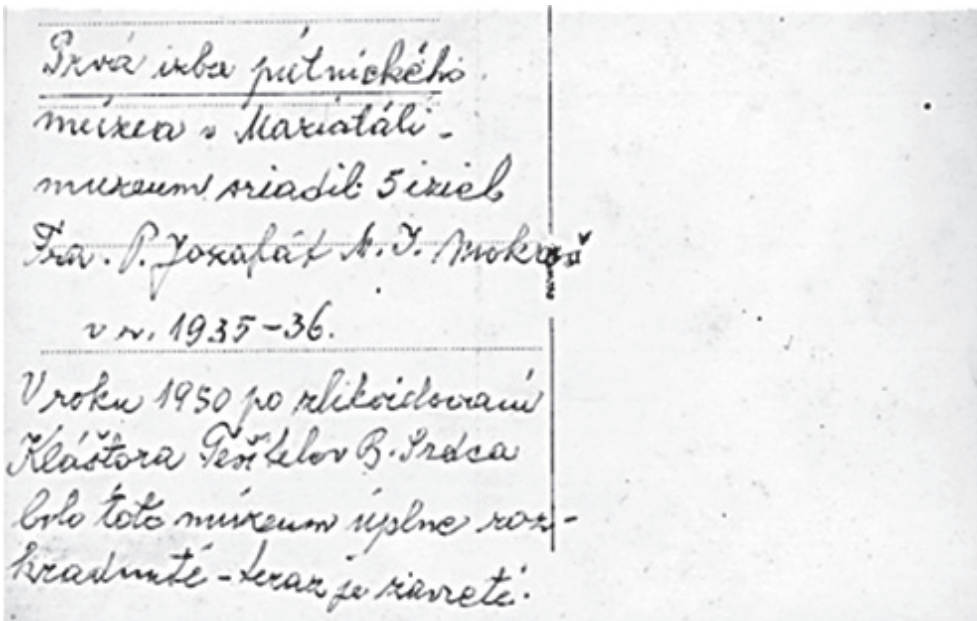 Prvá izba pútnického
múzea v Mariatáli -
muzeum zriadil 5 izieb
Fra. P. Jozafát M. J. Mokroš
v r. 1935-36.
V roku 1950 po zlikvidovaní
Kláštora Tešitelov B. Srdca
bolo toto múzeum úplne roz-
kradnuté - teraz je zavreté.